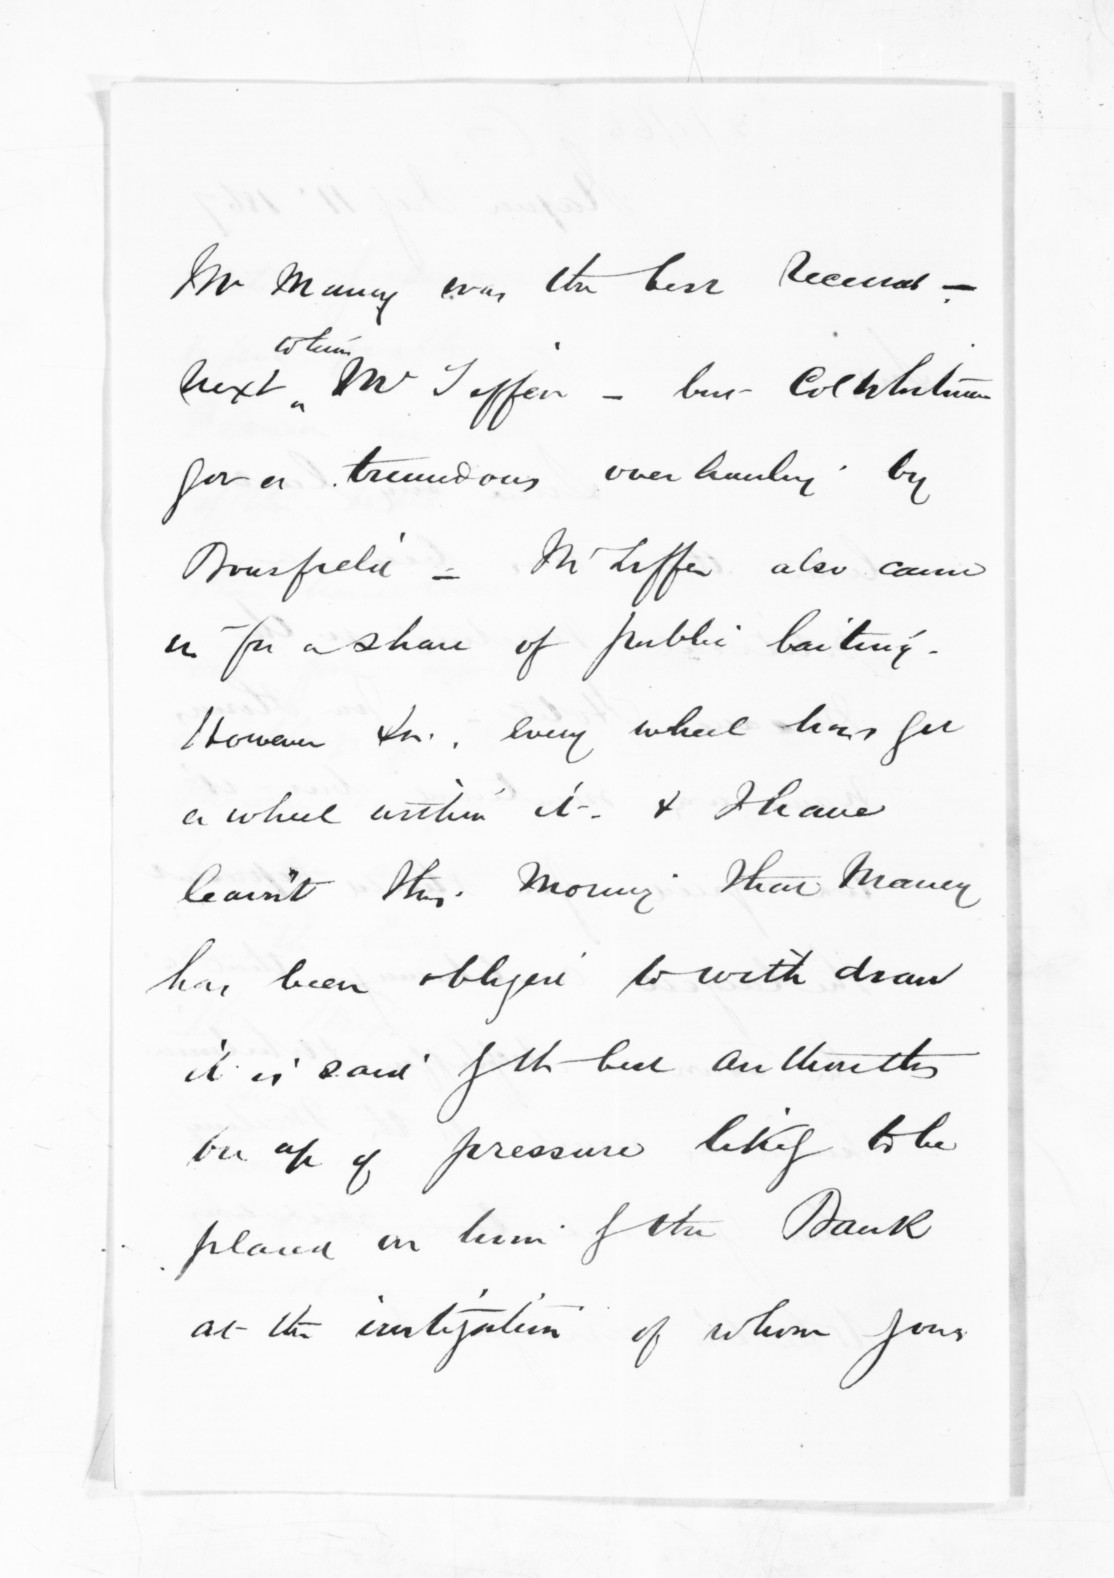 Mr Maney was the best received -
next to him Mr Tiffen - but Col Whitmore
got a tremendous overhauling by
Bousfield - Mr Tiffen also came
in for a share of public baiting.
However Sir, every wheel has got
a wheel within it - & I have
learnt this morning that Maney
has been obliged to withdraw
it is said f the best authorities
of pressure likely to be
placed on him f the Bank
at the instigation of whom your